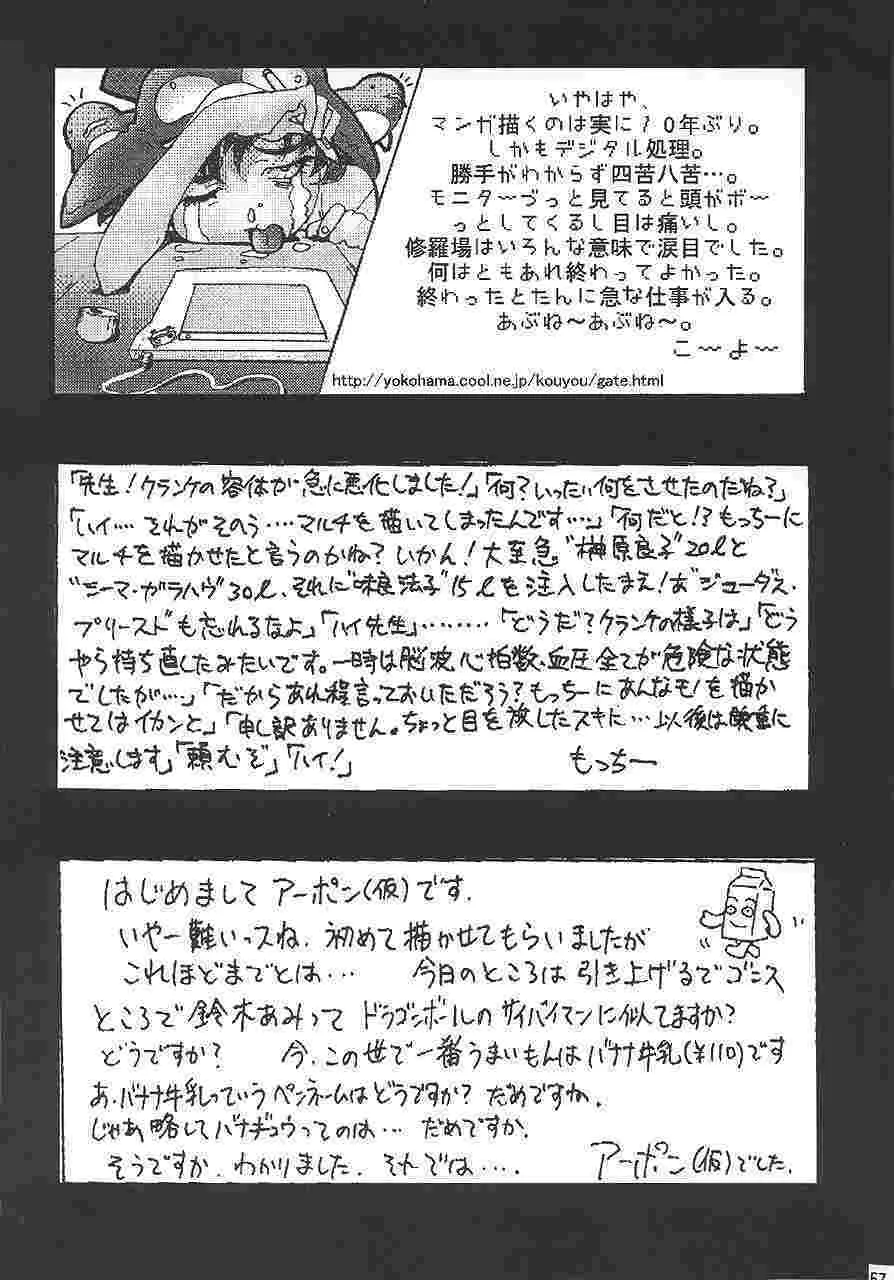 いやはや、
マンガ描くのは実に10年ぶり。
しかもデジタル処理。
勝手がわからず四苦八苦…。
モニターづっと見てると頭がボ～
っとしてくるし目は痛いし。
修羅場はいろんな意味で涙目でした。
何はともあれ終わってよかった。
終わったとたんに急な仕事が入る。
あぶね～あぶね～。
こ～よ～
http://yokohama.cool.ne.jp/kouyou/gate.html
「先生！クランケの容体が急に悪化しました！」「何？いったい何をさせたのだね？」
「ハイ…それがそのう…マルチを描いてしまったんです…」「何だと！？もっちーに
マルチを描かせたと言うのかね？いかん！大至急“榊原良子”20ℓと
“ニーマ・ガラハヴ”30ℓ、それに“味良法子”15ℓを注入したまえ！あ“ジューダス・
プリースト”も忘れるなよ」「ハイ先生」………「どうだ？クランケの様子は」「どう
やら持ち直したみたいです。一時は脳波、心拍数、血圧全てが危険な状態
でしたが…」「だからあれ程言っておいただろう？もっちーにあんなモノを描か
せてはイカンと」「申し訳ありません。ちょっと目を放したスキに…以後は慎重に
注意します」「頼むぞ」「ハイ！」
もっちー
はじめまして アーポン(仮)です.
いやー難いっスね. 初めて描かせてもらいましたが
これほどまでとは… 今日のところは引き上げるでゴンス
ところで鈴木あみって ドラゴンボールのサイバイマンに似てますか？
どうですか？ 今、この世で一番うまいもんはバナナ牛乳(¥110)です
あ、バナナ牛乳っていうペンネームはどうですか？ だめですね.
じゃあ略してバナギュウってのは… だめですか.
そうですか. わかりました. それでは….
アーポン(仮)でした.
67